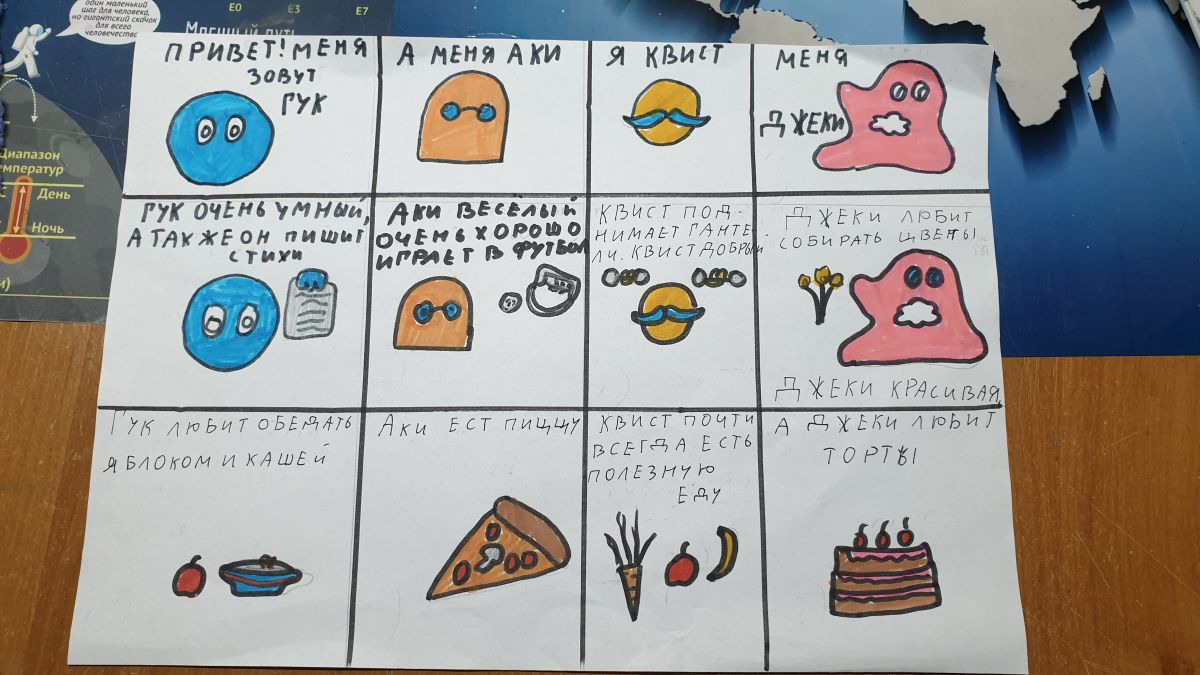 один маленький
шаг для человека,
но гигантский скачок
для всего
человечества
E0 E3 E7
Диапазон
температур
День
Ночь
ПРИВЕТ! МЕНЯ
ЗОВУТ
ГУК
А МЕНЯ АКИ
Я КВИСТ
МЕНЯ
ДЖЕКИ
ГУК ОЧЕНЬ УМНЫЙ,
А ТАКЖЕ ОН ПИШИТ
СТИХИ
АКИ ВЕСЁЛЫЙ
ОЧЕНЬ ХОРОШО
ИГРАЕТ В ФУТБОЛ
КВИСТ ПОД-
НИМАЕТ ГАНТЕ-
ЛИ. КВИСТ ДОБРЫЙ
ДЖЕКИ ЛЮБИТ
СОБИРАТЬ ЦВЕТЫ
ДЖЕКИ КРАСИВАЯ
ГУК ЛЮБИТ ОБЕДАТЬ
ЯБЛОКОМ И КАШЕЙ
АКИ ЕСТ ПИЦЦУ
КВИСТ ПОЧТИ
ВСЕГДА ЕСТЬ
ПОЛЕЗНУЮ
ЕДУ
А ДЖЕКИ ЛЮБИТ
ТОРТЫ